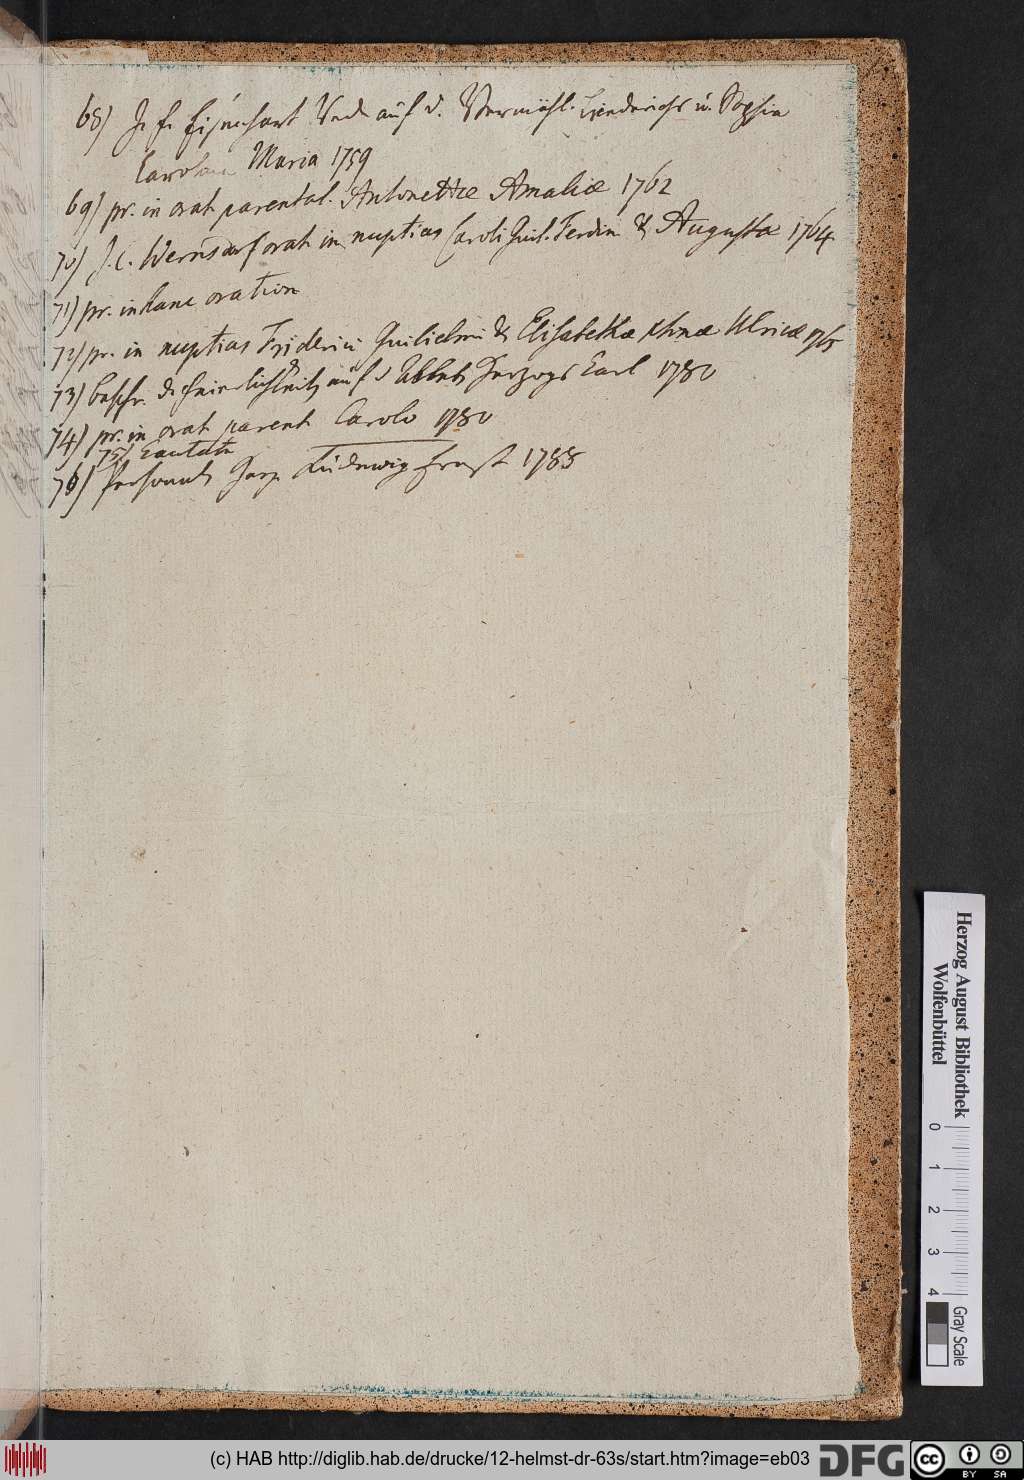 68) J. F. Eisenhart Rede auf d. Vermähl. Friederichs u. Sophia
Carolina Maria 1759
69) pr. in orat parental. Antonettæ Amaliæ 1762
70) J. C. Wernsdorf orat in nuptias Caroli Guil. Ferdin & Augustæ 1764
71) pr. in hanc oration
72) pr. in nuptias Friderici Guilielmi & Elisabethæ Chrnæ Ulricæ 1765
73) beschr. d. Feierlichkeit auf d Ableb Herzogs Carl 1780
74) pr. in orat parent Carolo 1780
75) Cantate
76) Personal Herz. Ludewig Ernst 1788
Herzog August Bibliothek
Wolfenbüttel
0 1 2 3 4
Gray Scale
(c) HAB http://diglib.hab.de/drucke/12-helmst-dr-63s/start.htm?image=eb03
DFG
cc BY SA